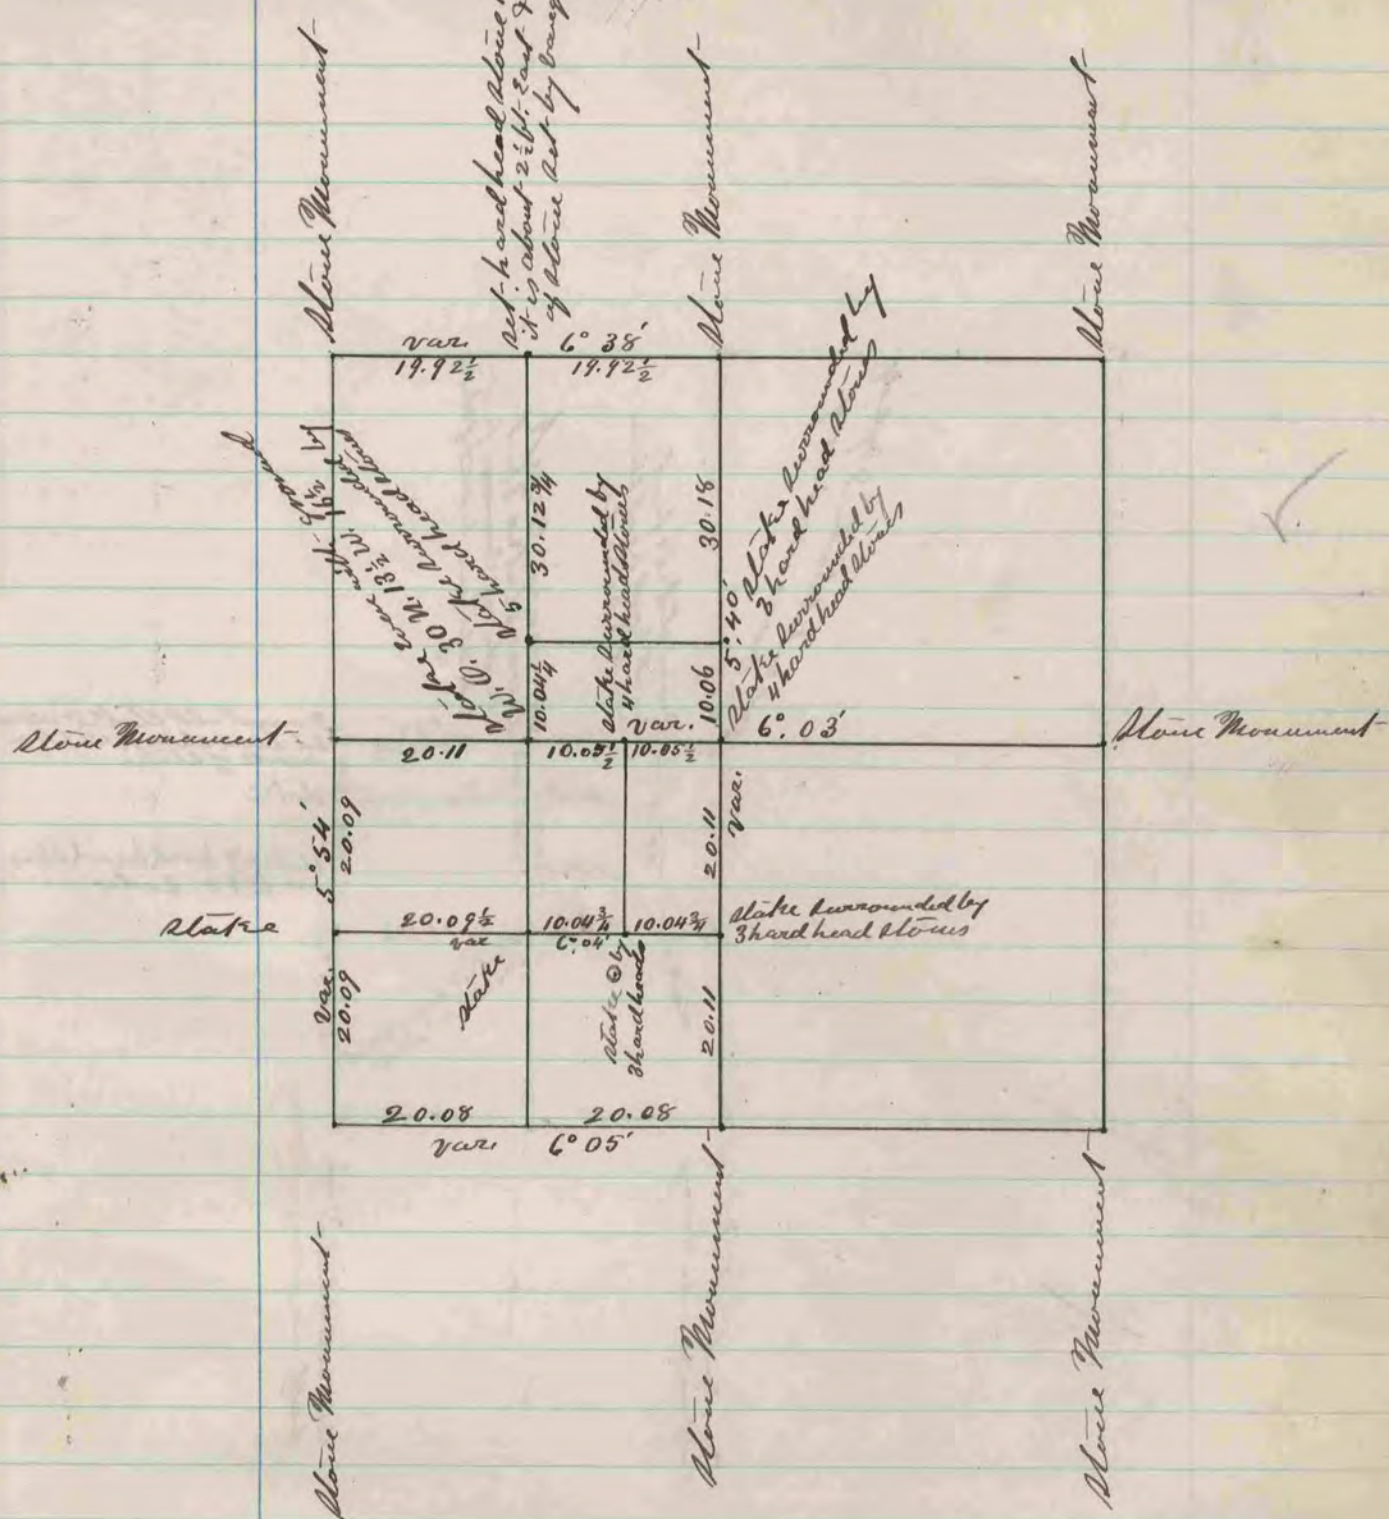 Stone Monument
set hard head stone
it is about 2½ ft. East
of stone set by
Stone Monument
Stone Monument
var. 6° 38'
19.92½ 19.92½
Stake even with ground
W.O. 30 N. 13½ W. 16½
Stake surrounded by
5 hard head stones
30.12¾
Stake surrounded by
4 hard head stones
30.18
Stake surrounded by
3 hard head stones
5°. 40'
Stake surrounded by
4 hard head stones
10.04¼
10.06
var. 6°. 03'
Stone Monument
Stone Monument
20.11 10.05½ 10.05½
5° 54'
20.09
20.11
var.
Stake
20.09½ 10.04¾ 10.04¾
var 6°. 04'
Stake surrounded by
3 hard head stones
var.
20.09
Stake
Stake ⊙ by
3 hard heads
20.11
20.08 20.08
var. 6° 05'
Stone Monument
Stone Monument
Stone Monument